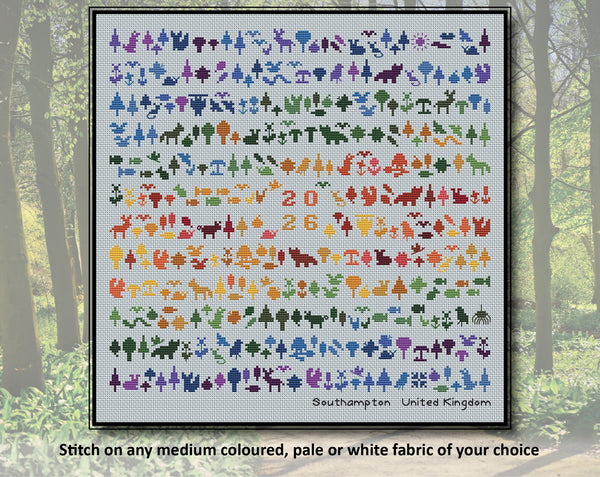 20
26
Southampton United Kingdom
Stitch on any medium coloured, pale or white fabric of your choice